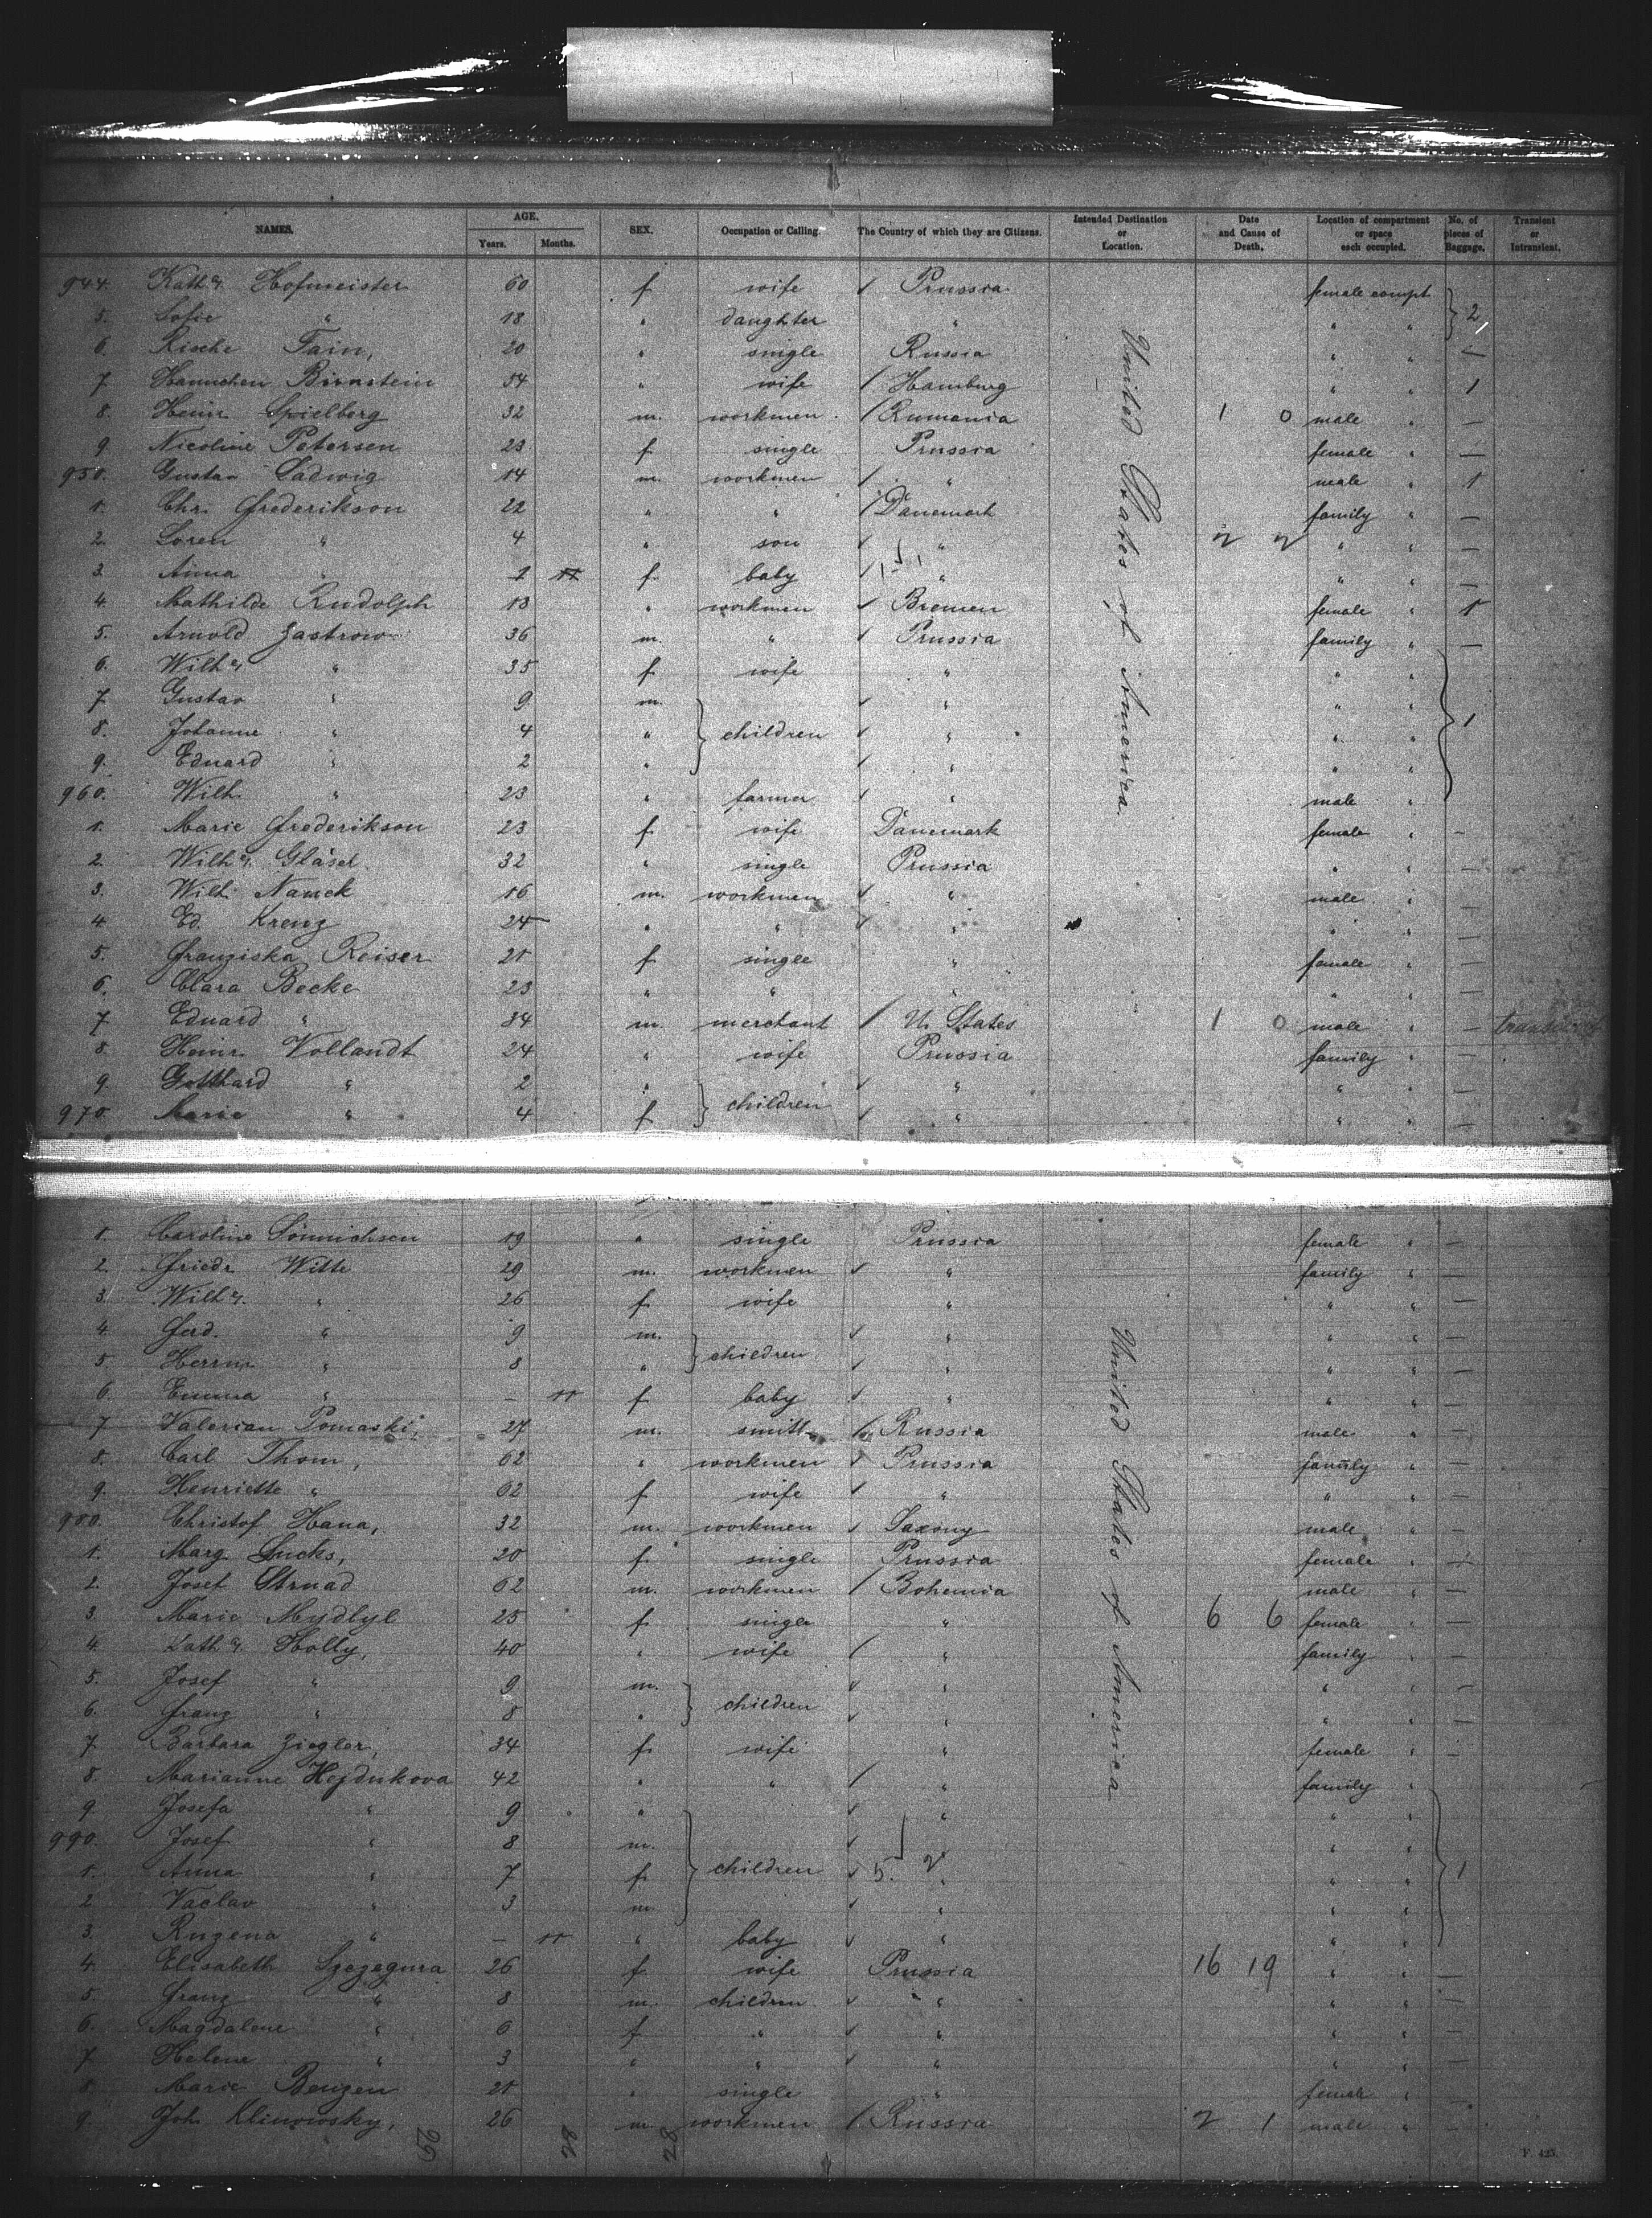 NAMES. AGE. Years. Months. SEX. Occupation or Calling. The Country of which they are Citizens. Intended Destination or Location. Date and Cause of Death. Location of compartment or space each occupied. No. of pieces of Baggage. Transient or Intransient.
United States of America
944. Kath a. Hofmeister 60 f wife Prussia female compt
5. Sofie " 18 " daughter " " " 2
6. Rische Fain, 20 " single Russia " " —
7. Hannchen Birnstein 54 " wife Hamburg " " 1
8. Heinr Spielberg 32 m. workmen Rumania 1 0 male " —
9. Nicoline Petersen 23 f single Prussia female " —
950. Gustav Ladwig 14 m. workmen " male " 1
1. Chr. Frederikson 22 " " Dänemark family " —
2. Soren " 4 " son " 2 2 " " —
3. Anna " 1 11 f. baby " " " —
4. Mathilde Rudolph 13 " workmen Bremen female " 1
5. Arnold Zastrow 36 m. " Prussia family " —
6. Wilh a. " 35 f wife " " "
7. Gustav " 9 m. " " "
8. Johanne " 4 " children " " " 1
9. Eduard " 2 " " " "
960. Wilh. " 23 " farmer " male "
1. Marie Frederikson 23 f. wife Dänemark female " —
2. Wilh a. Gläsel 32 " single Prussia " " —
3. Wilh. Nauck 16 m. workmen " male " —
4. Ed. Krenz 24 " " " " " —
5. Franziska Reiser 21 f single " female " —
6. Clara Becke 23 " " " " " —
7. Eduard " 34 m. merchant U. States 1 0 male " —
8. Heinr. Vollandt 24 " wife Prussia family " —
9. Gotthard " 2 " " " " —
970. Marie " 4 f children " " " —
1. Caroline Sönnichsen 19 " single Prussia female " —
2. Friedr Witte 29 m. workmen " family " —
3. Wilh a. " 26 f wife " " " —
4. Ferd. " 9 m. " " " —
5. Herrm " 8 " children " " " —
6. Emma " — 11 f baby " " " —
7. Valerian Pomaski, 27 m. smith Russia male " —
8. Carl Thom, 62 " workmen Prussia family " —
9. Henriette " 62 f wife " " " —
980. Christof Hana, 32 m. workmen Saxony male " —
1. Marg. Lucks, 20 f. single Prussia female " —
2. Josef Strnad 62 m. workmen Bohemia male " —
3. Marie Mydlyl 25 f. single " 6 6 female " —
4. Kath a. Holly, 40 " wife " family " —
5. Josef " 9 m. " " " —
6. Franz " 8 " children " " " —
7. Barbara Ziegler, 34 f. wife " female " —
8. Marianne Hejdukova 42 " " " family "
9. Josefa " 9 " " " "
990. Josef " 8 m. " " "
1. Anna " 7 f. children 5. 2 " " " 1
2. Vaclav " 3 m " " "
3. Ruzena " — 11 " baby " " "
4. Elisabeth Szezegura 26 f. wife Prussia 16 19 " " —
5. Franz " 8 m. children " " " —
6. Magdalene " 6 f " " " " —
7. Helene " 3 " " " " " —
8. Marie Benzen 21 " single " female " —
9. Joh. Klinowsky, 26 m workmen Russia 2 1 male " —
United States of America
F. 425.